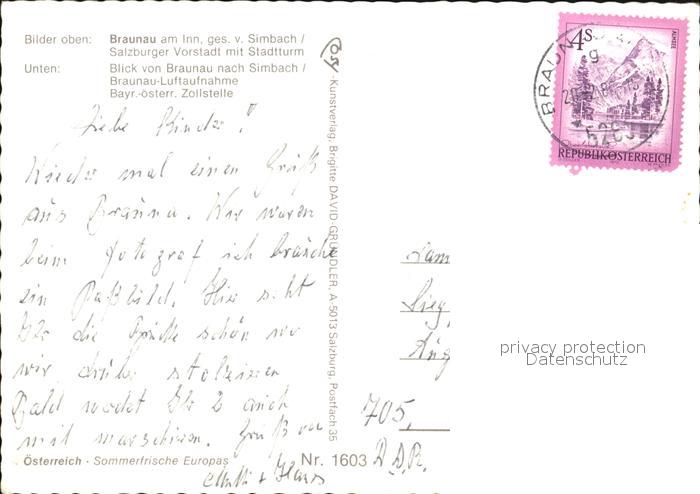 Bilder oben: Braunau am Inn, ges. v. Simbach /
Salzburger Vorstadt mit Stadtturm
Unten: Blick von Braunau nach Simbach /
Braunau-Luftaufnahme
Bayr.-österr. Zollstelle
Liebe Kinder!
Wieder mal einen Gruß
aus Braunau. Wir waren
beim Fotograf ich brauche
ein Paßbild. Hier seht
Ihr die Brücke schön wo
wir drüber stolzieren
Bald werdet Ihr 2 auch
mit marschieren. Gruß von
Mutti + Hans
Österreich - Sommerfrische Europas
Nr. 1603
Kunstverlag, Brigitte DAVID-GRUNDLER, A-5013 Salzburg, Postfach 35
4 S
ALMSEE
REPUBLIK ÖSTERREICH
BRAUN
528
Fam
Sieg
Aug
705
D.D.R.
privacy protection
Datenschutz